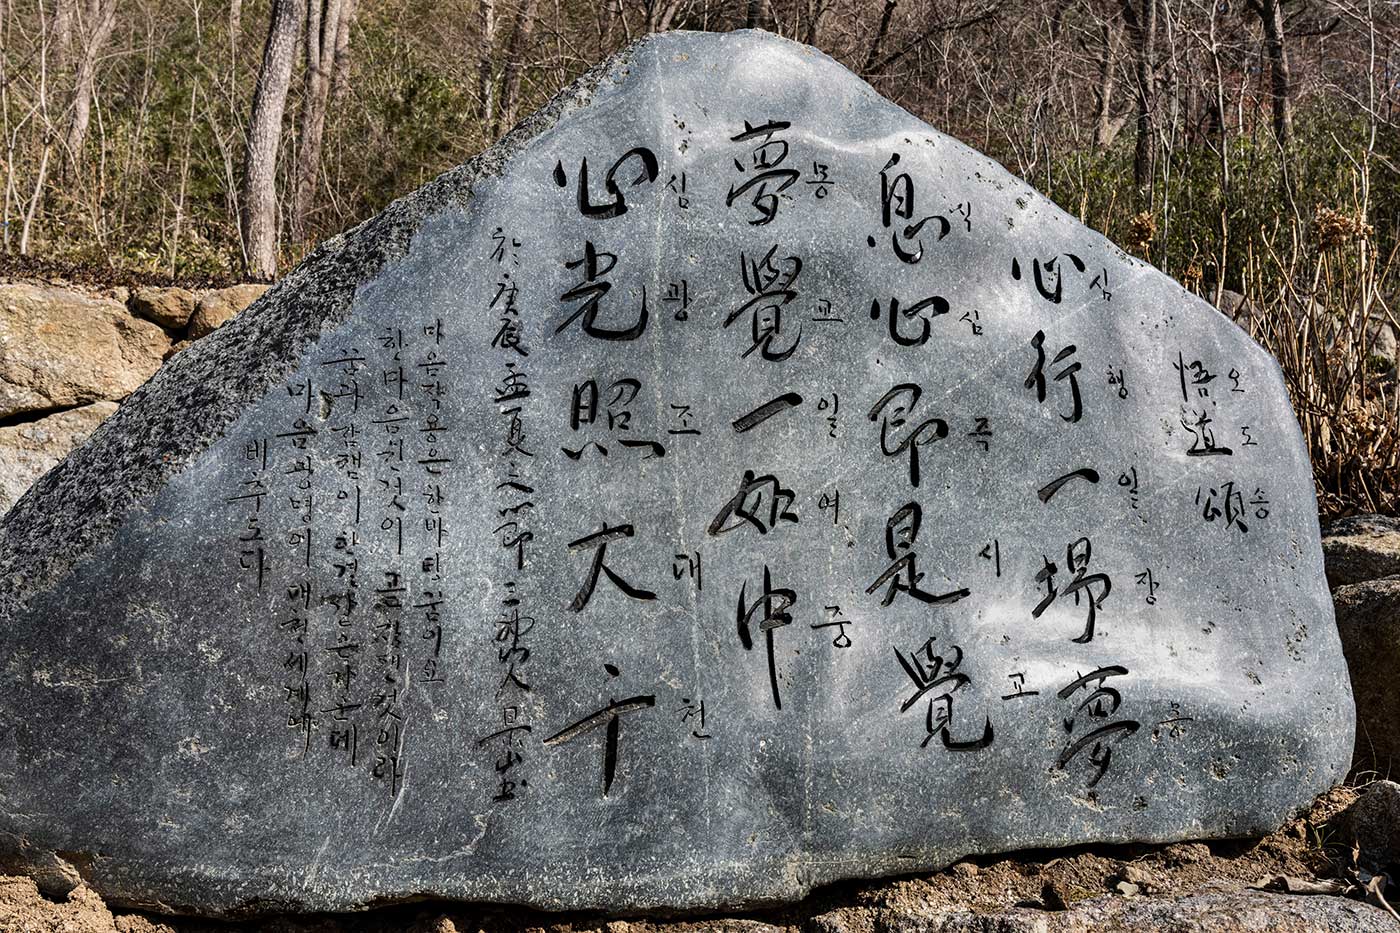 悟道頌
오도송
心行一場夢
심행일장몽
息心即是覺
식심즉시교
夢覺一如中
몽교일여중
心光照大千
심광조대천
於庚辰孟夏之節 三神 杲山
마음작용은한바탕꿈이요
한마음쉰것이 곧잠깬것이라
꿈과잠깸이한결같은가운데
마음광명이대천세계에
비추도다